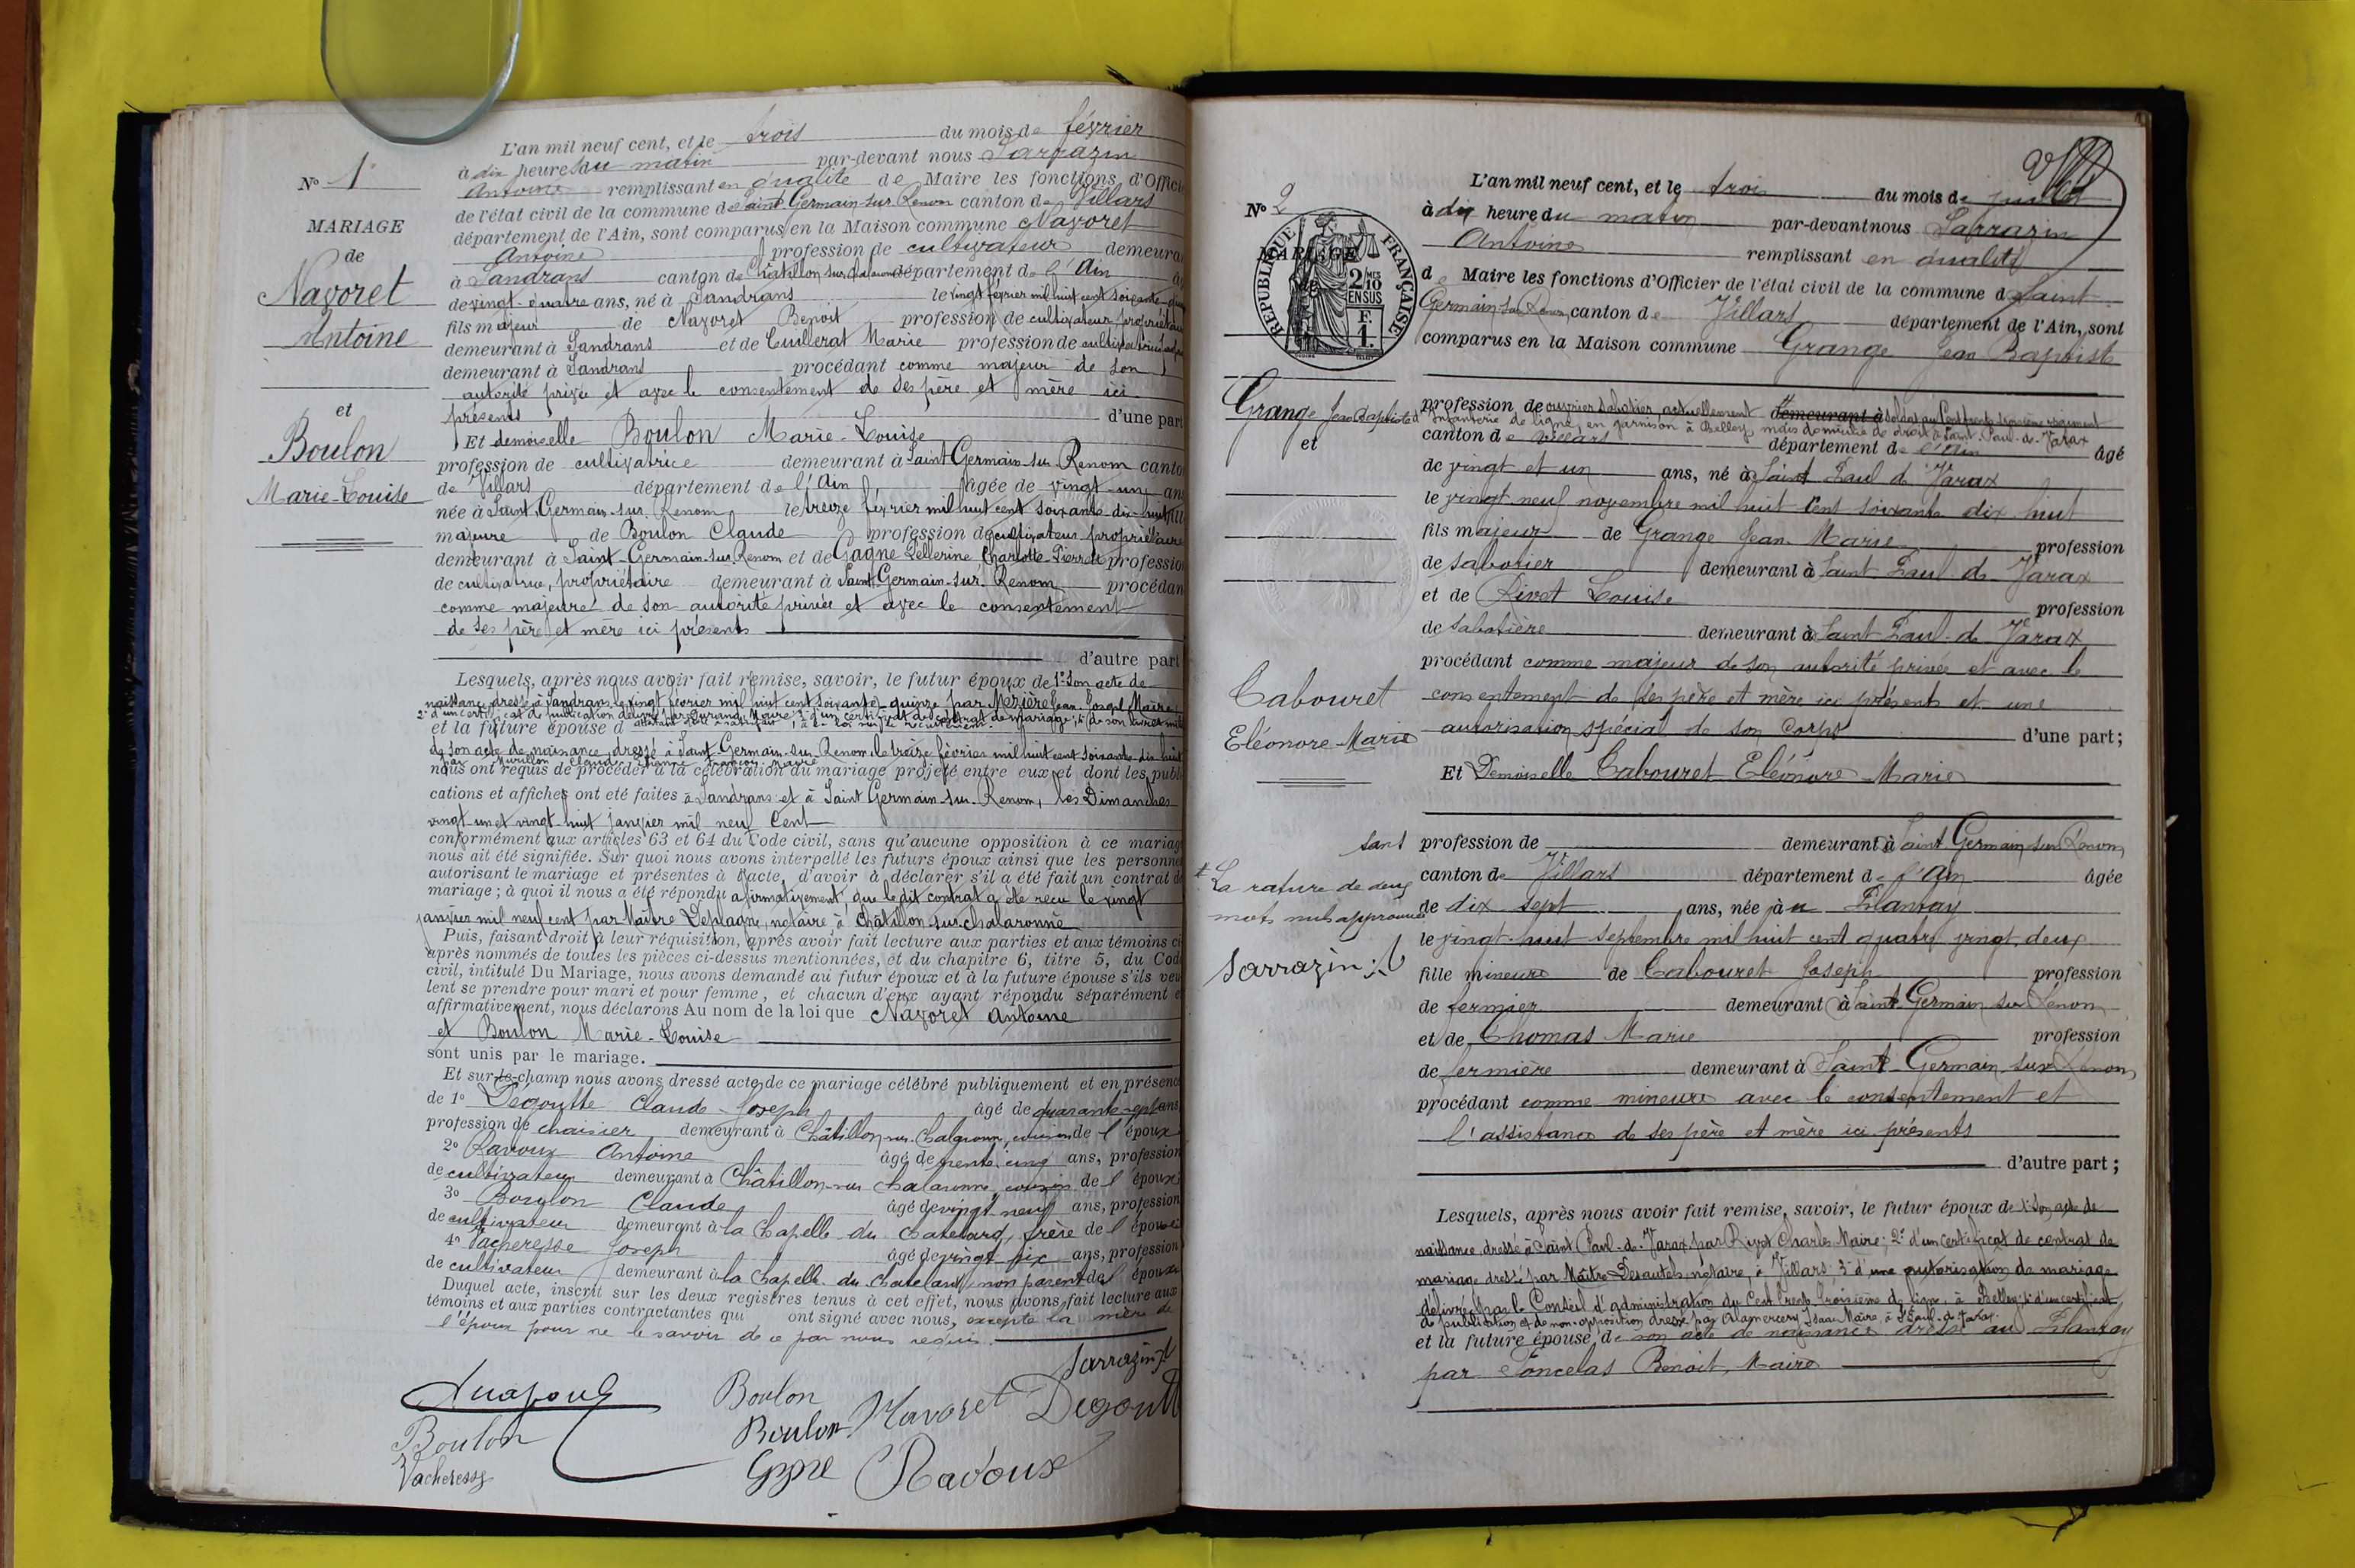 N° 1
MARIAGE
de
Navoret
Antoine
et
Boulon
Marie-Louise
L'an mil neuf cent, et le trois du mois de février
à dix heures du matin par-devant nous Sarrazin
Antoine remplissant en qualité de Maire les fonctions d'Offici
de l'état civil de la commune de Saint Germain-sur Renom canton de Villars
département de l'Ain, sont comparus en la Maison commune Navoret
Antoine profession de cultivateur demeura
à Sandrans canton de Châtillon sur Chalaronne département de l'Ain
de vingt-quatre ans, né à Sandrans le vingt février mil huit cent soixante-quin
fils majeur de Navoret Benoit profession de cultivateur propriétaire
demeurant à Sandrans et de Cuillerat Marie profession de cultivatrice
demeurant à Sandrans procédant comme majeur de son
autorité privée et avec le consentement de ses père et mère ici
présents d'une par
Et demoiselle Boulon Marie-Louise
profession de cultivatrice demeurant à Saint Germain-sur Renom canto
de Villars département de l'Ain âgée de vingt-un ans
née à Saint-Germain-sur-Renom le treize février mil huit cent soixante-dix-huit
majeure de Boulon Claude profession de cultivateur propriétaire
demeurant à Saint-Germain-sur Renom et de Gagne Pellerine Charlotte-Pierrette profession
de cultivatrice, propriétaire demeurant à Saint Germain-sur-Renom procédan
comme majeure de son autorité privée et avec le consentement
de ses père et mère ici présents
d'autre part
Lesquels, après nous avoir fait remise, savoir, le futur époux de 1° Son acte de
naissance dressé à Sandrans le vingt février mil huit cent soixante-quinze par Mézière Jean Joseph Maire;
2° d'un certificat de publication délivré par Maire 3° d'un certificat de contrat de mariage, 4° de son livret
et la future épouse d
de son acte de naissance dressé à Saint-Germain-sur Renom le treize février mil huit cent soixante dix huit
par Murillon Claude Etienne François Maire
nous ont requis de procéder à la célébration du mariage projeté entre eux et dont les publi
cations et affiches ont été faites à Sandrans et à Saint Germain-sur-Renom, les Dimanches
vingt-un et vingt-huit janvier mil neuf Cent
conformément aux articles 63 et 64 du Code civil, sans qu'aucune opposition à ce mariag
nous ait été signifiée. Sur quoi nous avons interpellé les futurs époux ainsi que les personne
autorisant le mariage et présentes à l'acte, d'avoir à déclarer s'il a été fait un contrat d
mariage ; à quoi il nous a été répondu affirmativement, que le dit contrat a été reçu le vingt
janvier mil neuf cent par Maître Leplagne, notaire à Châtillon-sur-Chalaronne
Puis, faisant droit à leur réquisition, après avoir fait lecture aux parties et aux témoins ci
après nommés de toutes les pièces ci-dessus mentionnées, et du chapitre 6, titre 5, du Cod
civil, intitulé Du Mariage, nous avons demandé au futur époux et à la future épouse s'ils veu
lent se prendre pour mari et pour femme, et chacun d'eux ayant répondu séparément e
affirmativement, nous déclarons Au nom de la loi que Navoret Antoine
et Boulon Marie-Louise
sont unis par le mariage.
Et sur-le-champ nous avons dressé acte de ce mariage célébré publiquement et en présenc
de 1° Dégoutte Claude-Joseph âgé de quarante-sept ans
profession de chaisier demeurant à Châtillon-sur-Chalaronne, cousin de l'époux
2° Ravoux Antoine âgé de trente cinq ans, profession
de cultivateur demeurant à Châtillon-sur Chalaronne, cousin de l'époux
3° Boulon Claude âgé de vingt-neuf ans, profession
de cultivateur demeurant à la Chapelle du Chatelard, frère de l'épouse
4° Vacheresse Joseph âgé de vingt six ans, profession
de cultivateur demeurant à la Chapelle du Chatelard non parent de l'époux
Duquel acte, inscrit sur les deux registres tenus à cet effet, nous avons fait lecture aux
témoins et aux parties contractantes qui ont signé avec nous, excepté la mère de
l'époux pour ne le savoir de ce par nous requis.
Sarrazin A
Boulon
Boulon Navoret Degoutt
Boulon
Vacheresse
Ravoux
N° 2
RÉPUBLIQUE FRANÇAISE
2/10 EN SUS
F.
1.
MARIAGE
de
Grange Jean Baptiste
et
Cabouret
Eléonore-Marie
La rature de deux
mots nuls approuvée
Sarrazin A
L'an mil neuf cent, et le trois du mois de juillet
à dix heure du matin par-devant nous Sarrazin
Antoine remplissant en qualité
de Maire les fonctions d'Officier de l'état civil de la commune de Saint
Germain-sur Renom, canton de Villars département de l'Ain, sont
comparus en la Maison commune Grange Jean Baptiste
profession de ouvrier sabotier, actuellement demeurant à soldat au Cent trente troisième régiment
d'Infanterie de ligne, en garnison à Belley, mais domicilié de droit à Saint-Paul-de-Varax
canton de Villars département de l'Ain âgé
de vingt et un ans, né à Saint Paul d Varax
le vingt neuf novembre mil huit cent soixante dix huit
fils majeur de Grange Jean Marie profession
de sabotier demeurant à Saint Paul de Varax
et de Rivet Louise profession
de sabotière demeurant à Saint Paul de Varax
procédant comme majeur de son autorité privée et avec le
consentement de ses père et mère ici présents et une
autorisation spécial de son Corps d'une part;
Et Demoiselle Cabouret Eléonore Marie
sans profession de demeurant à Saint Germain sur Renom
canton de Villars département de l'Ain âgée
de dix sept ans, née à u Plantay
le vingt-huit septembre mil huit cent quatre vingt deux
fille mineure de Cabouret Joseph profession
de fermier demeurant à Saint Germain sur Renom
et de Thomas Marie profession
de fermière demeurant à Saint Germain sur Renom
procédant comme mineure avec le consentement et
l'assistance de ses père et mère ici présents
d'autre part ;
Lesquels, après nous avoir fait remise, savoir, le futur époux de 1° Son acte de
naissance dressé à Saint Paul-de-Varax par Rivet Charles Maire; 2° d'un certificat de contrat de
mariage dressé par Maître Desautels notaire, à Villars; 3° d'une autorisation de mariage
délivrée par le Conseil d'administration du Cent trente troisième de ligne, à Belley; 4° d'un certificat
de publication et de non-opposition dressé par Isaac Maire, à St Paul-de-Varax.
et la future épouse, de son acte de naissance dressé au Plantay
par Poncelas Benoit, Maire